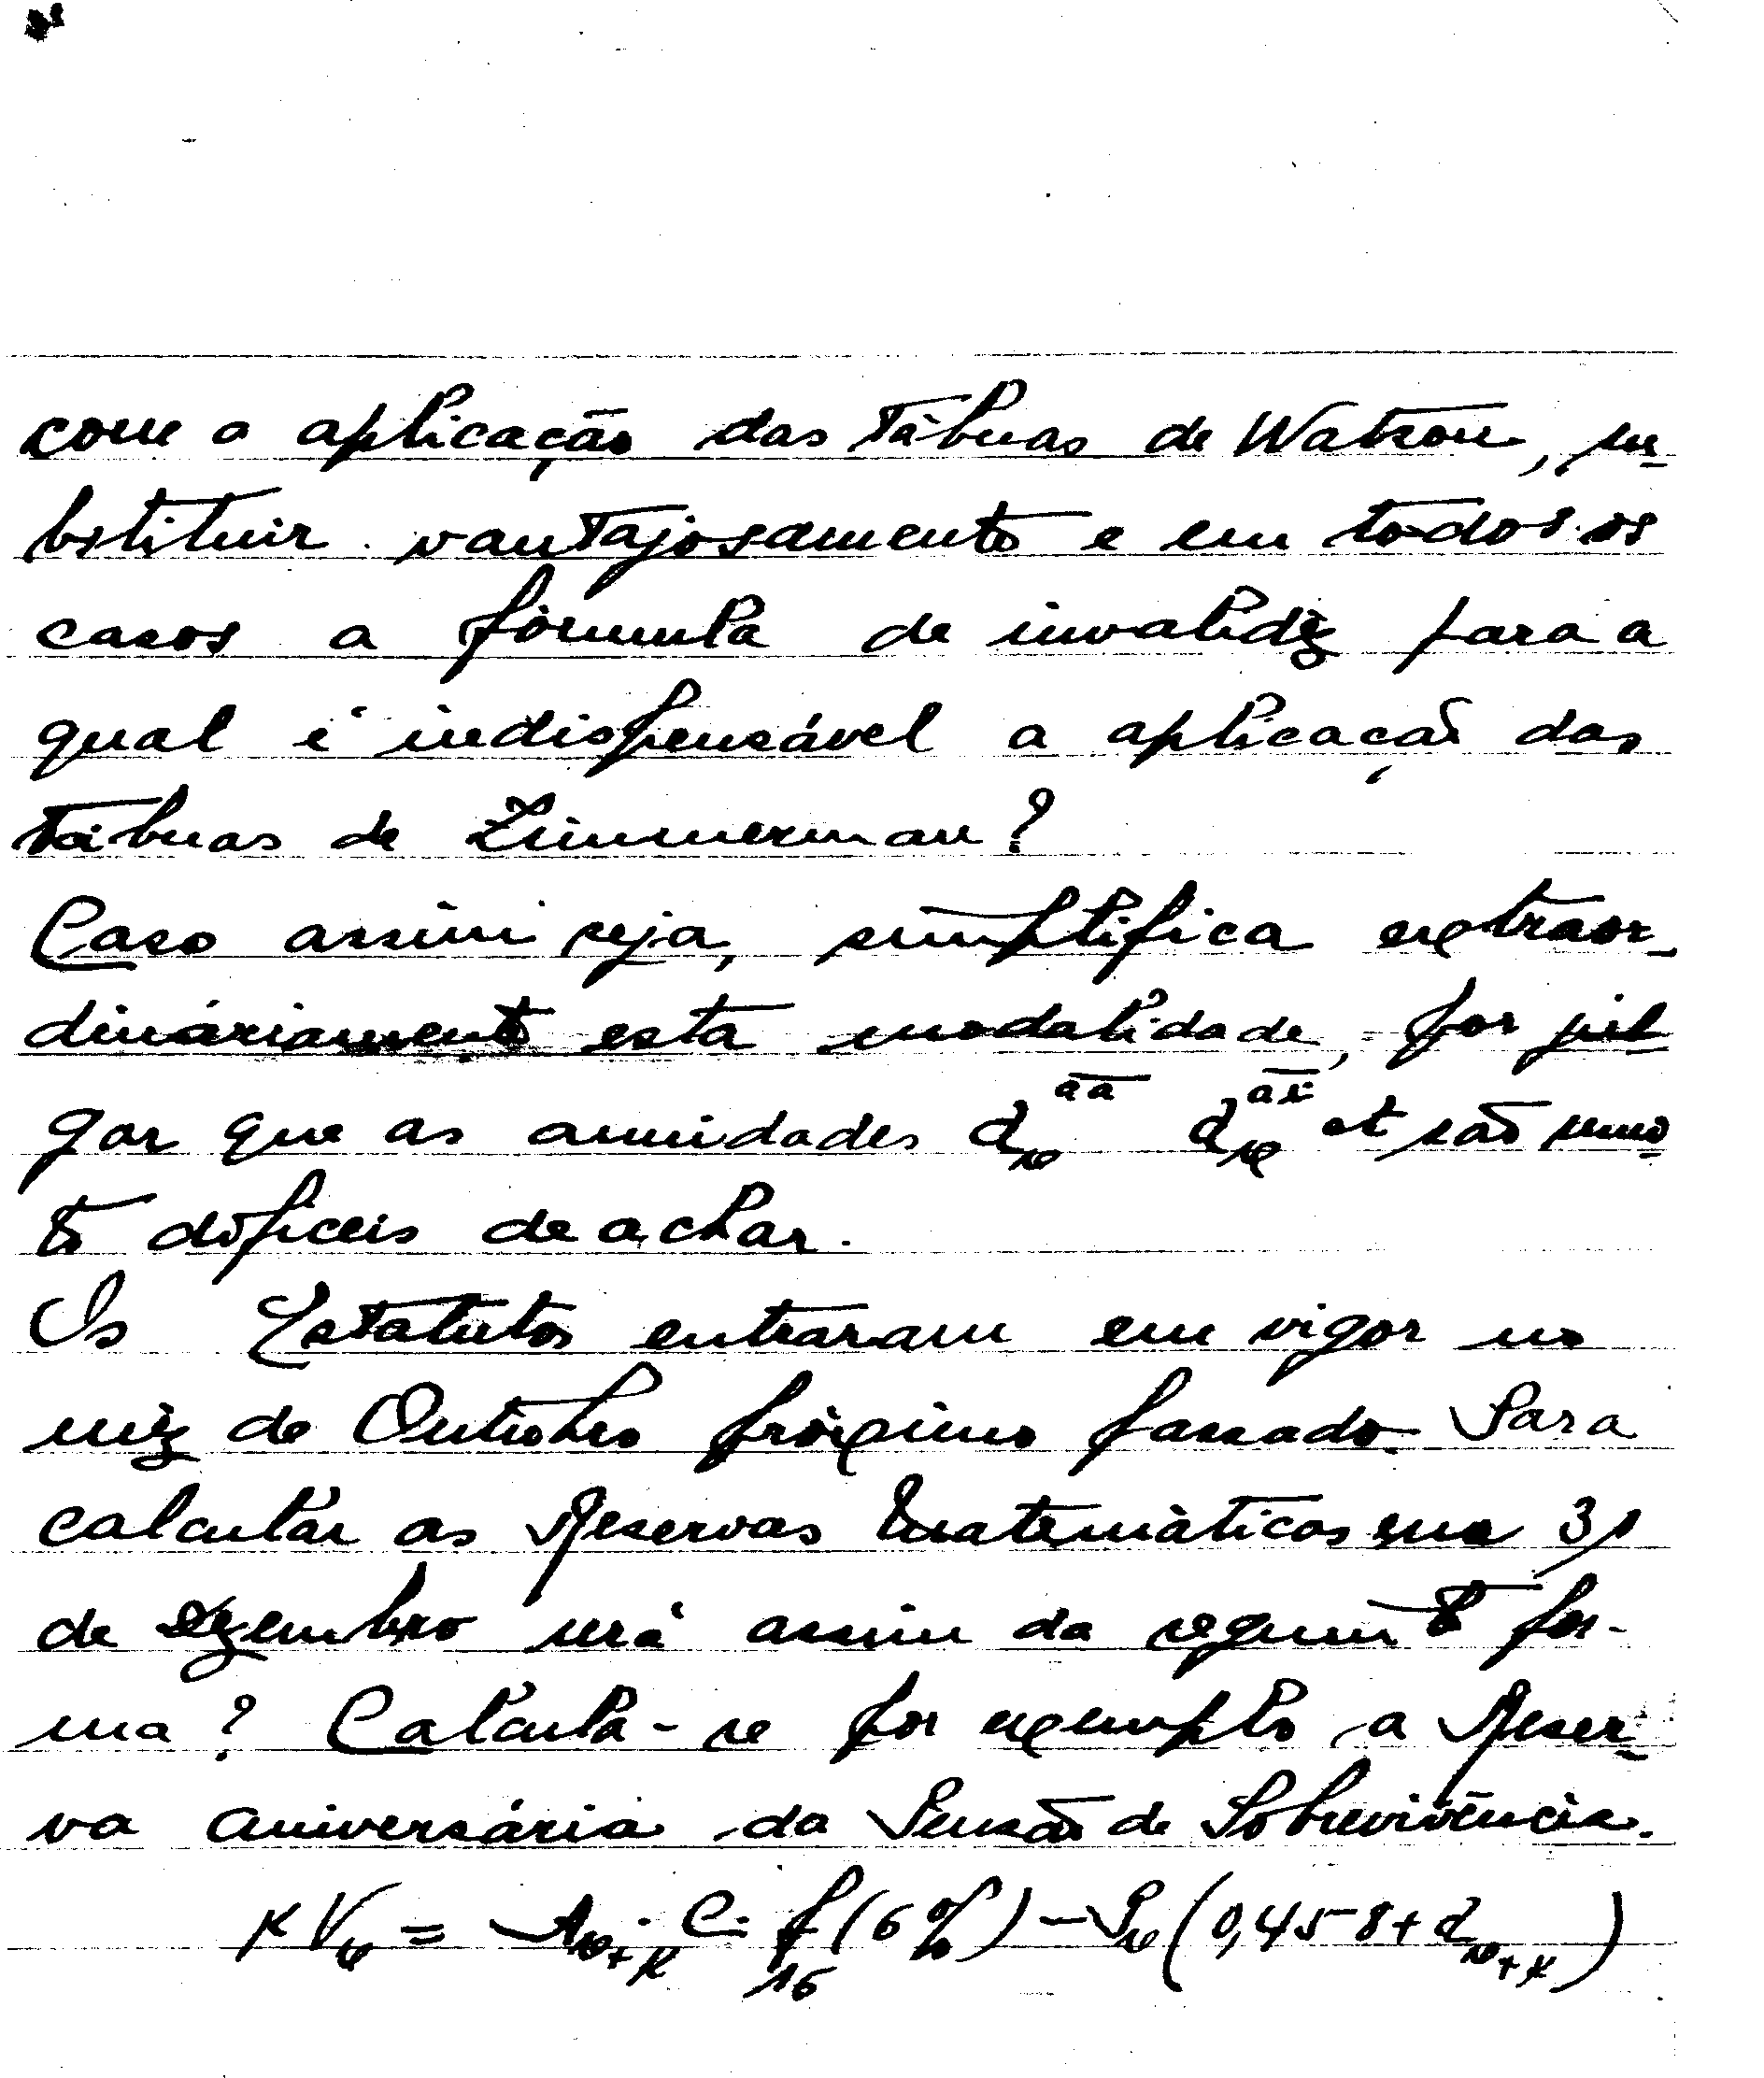 com a aplicação das Tábuas de Watson, su-
bstituir vantajosamente e em todos os
casos a fórmula de invalidêz para a
qual é indispensável a aplicação das
Tábuas de Zimmerman?
Caso assim seja, simplifica extraor-
dináriamente esta modalidade, por jul
gar que as anuidades a_x^{aa} a_x^{ai} et são mui
to dificeis de achar.
Os Estatutos entraram em vigor no
mêz de Outubro próximo passado. Para
calcular as Reservas Matemáticas em 31
de Dezembro será assim da seguinte for-
ma? Calcula-se por exemplo a Reser-
va aniversária da Pensão de Sobrevivência.
KVx = Ax+K · C · f16 (6%) - Px (0,458 + ax+K)